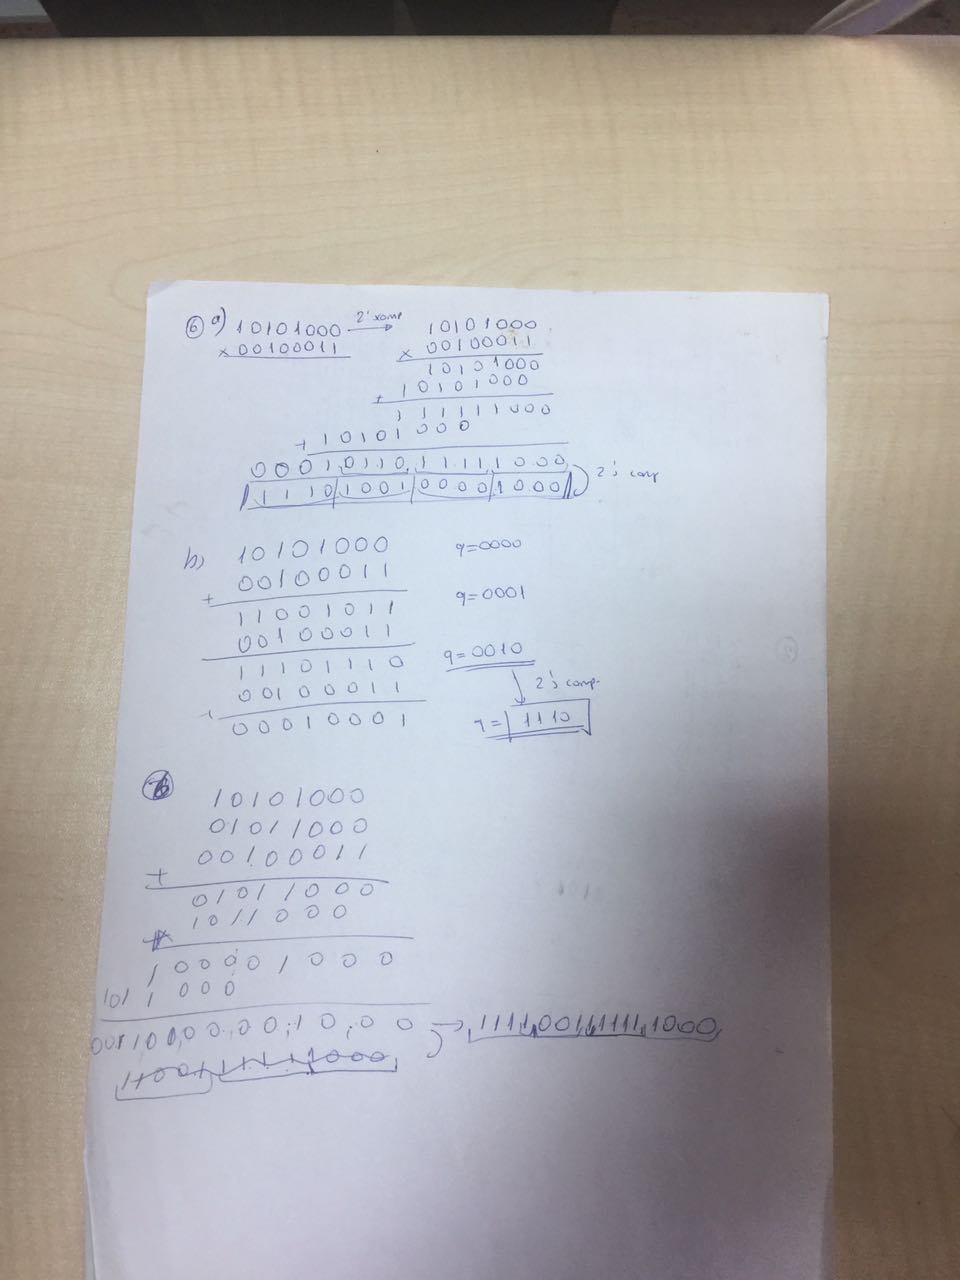 6 a) 10101000 2'comp → 10101000
× 00100011 × 00100011
10101000
+ 10101000
111111000
+ 10101000
0001011011111000
1110100100001000 2's comp
b) 10101000 q=0000
+ 00100011
11001011 q=0001
00100011
11101110 q=0010
+ 00100011 2's comp.
00010001 q= 1110
10101000
01011000
+ 00100011
01011000
1011000
100001000
1011000
0001100000010000 → 1111100111111000
1100111111000